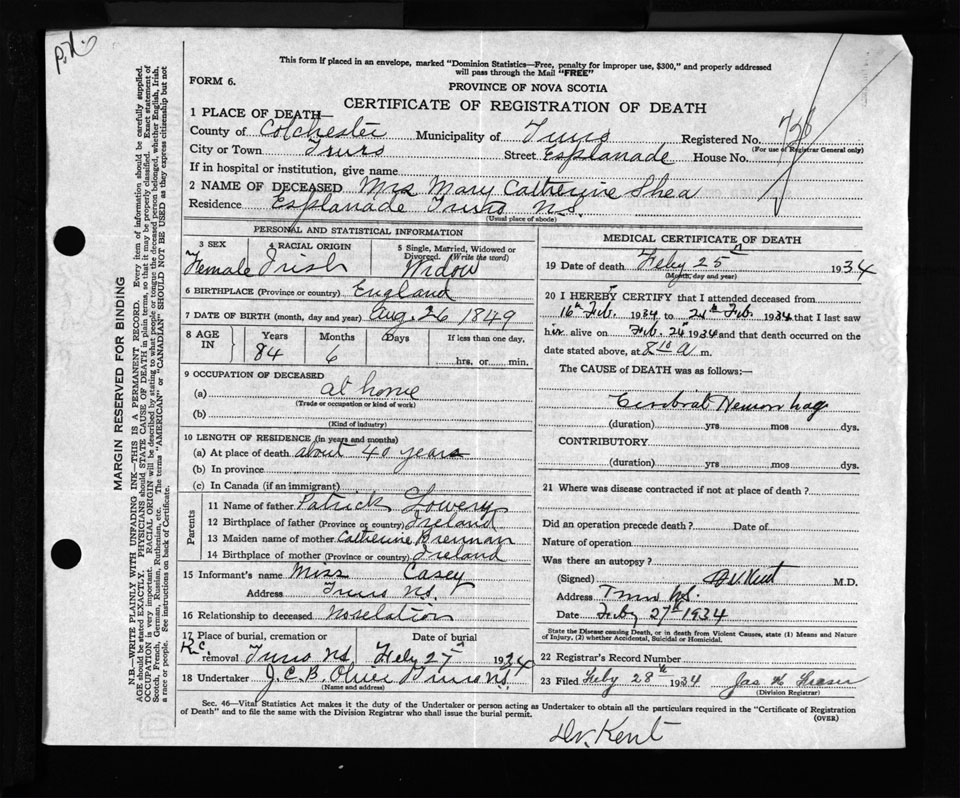 P.K.
This form if placed in an envelope, marked "Dominion Statistics—Free, penalty for improper use, $300," and properly addressed
will pass through the Mail "FREE"
FORM 6.
PROVINCE OF NOVA SCOTIA
CERTIFICATE OF REGISTRATION OF DEATH
1 PLACE OF DEATH—
County of Colchester Municipality of Truro Registered No. 726
(For use of Registrar General only)
City or Town Truro Street Esplanade House No.
If in hospital or institution, give name
2 NAME OF DECEASED Mrs Mary Catherine Shea
Residence Esplanade Truro N.S.
(Usual place of abode)
PERSONAL AND STATISTICAL INFORMATION
3 SEX 4 RACIAL ORIGIN 5 Single, Married, Widowed or
Divorced. (Write the word)
Female Irish Widow
6 BIRTHPLACE (Province or country) England
7 DATE OF BIRTH (month, day and year) Aug. 26 1849
8 AGE IN Years Months Days If less than one day,
84 6 hrs. or min.
9 OCCUPATION OF DECEASED
(a) at home
(Trade or occupation or kind of work)
(b)
(Kind of industry)
10 LENGTH OF RESIDENCE (in years and months)
(a) At place of death about 40 years
(b) In province
(c) In Canada (if an immigrant)
Parents
11 Name of father Patrick Lowery
12 Birthplace of father (Province or country) Ireland
13 Maiden name of mother Catherine Brennan
14 Birthplace of mother (Province or country) Ireland
15 Informant's name Miss Casey
Address Truro N.S.
16 Relationship to deceased No relation
17 Place of burial, cremation or Date of burial
R.C. removal Truro N.S. Feby 27th 1934
18 Undertaker J.C.B. Olive Truro N.S.
(Name and address)
MEDICAL CERTIFICATE OF DEATH
19 Date of death Feby 25th 1934
(Month, day and year)
20 I HEREBY CERTIFY that I attended deceased from
16th Feb. 1934 to Feb. 1934 that I last saw
her alive on Feb. 1934 and that death occurred on the
date stated above, at 8 10 a m.
The CAUSE of DEATH was as follows:—
Cerebral Hemorrhag
(duration) yrs mos dys.
CONTRIBUTORY
(duration) yrs. mos dys.
21 Where was disease contracted if not at place of death?
Did an operation precede death? Date of
Nature of operation
Was there an autopsy?
(Signed) Kent M.D.
Address Truro N.S.
Date Feby 27th 1934
State the Disease causing Death, or in death from Violent Causes, state (1) Means and Nature
of Injury, (2) whether Accidental, Suicidal or Homicidal.
22 Registrar's Record Number
23 Filed Feby 28th 1934 Jas Fraser
(Division Registrar)
Sec. 46—Vital Statistics Act makes it the duty of the Undertaker or person acting as Undertaker to obtain all the particulars required in the "Certificate of Registration
of Death" and to file the same with the Division Registrar who shall issue the burial permit.
(OVER)
Dr. Kent
MARGIN RESERVED FOR BINDING
N.B.—WRITE PLAINLY WITH UNFADING INK—THIS IS A PERMANENT RECORD. Every item of information should be carefully supplied.
AGE should be stated EXACTLY. PHYSICIANS should STATE CAUSE OF DEATH in plain terms, so that it may be properly classified. Exact statement of
OCCUPATION is very important. RACIAL ORIGIN will be described by stating to what people or tongue the deceased person belonged, whether English, Irish,
Scotch, French, German, Russian, Ruthenian, etc. The terms "AMERICAN" or "CANADIAN" SHOULD NOT BE USED as they express citizenship but not
a race or people. See instructions on back of Certificate.